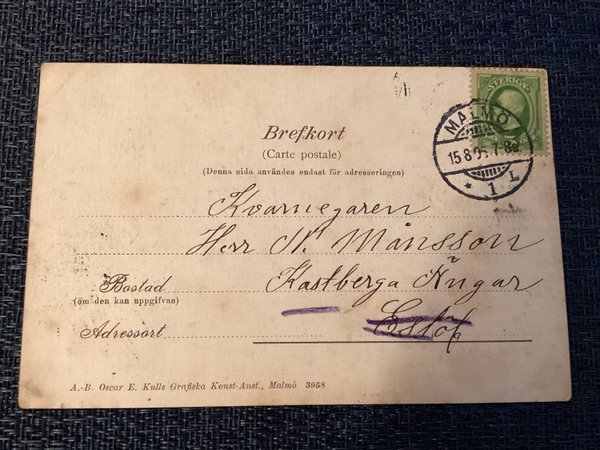 SVERIGE
MALMÖ
15.8.05.7-8e
* 1 L
Brefkort
(Carte postale)
(Denna sida användes endast för adresseringen)
Kvarnegaren
Herr N. Månsson
Bostad Kastberga Ängar
(om den kan uppgifvas)
Adressort Eslöf
A.-B. Oscar E. Kulls Grafiska Konst-Anst., Malmö 3958